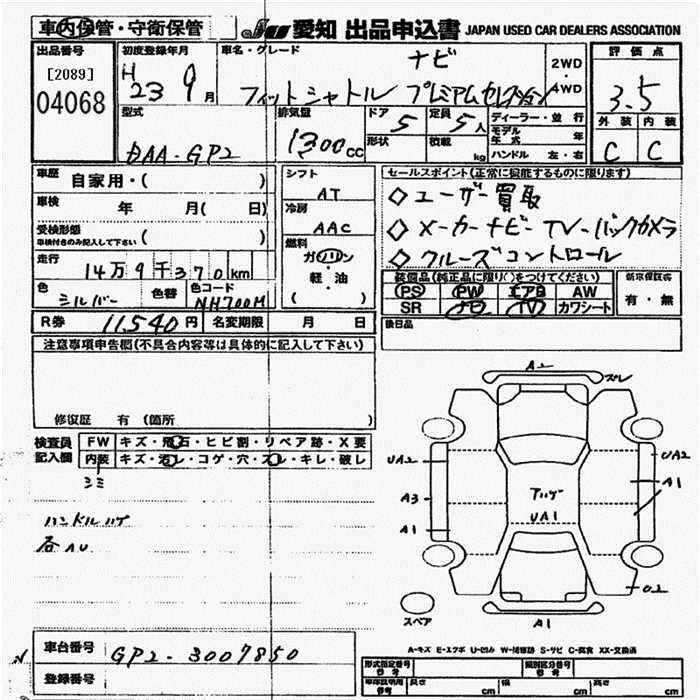 車内保管・守衛保管
JU 愛知 出品申込書 JAPAN USED CAR DEALERS ASSOCIATION
出品番号
[2089]
04068
初度登録年月
H 23 9月
車名・グレード
ナビ
フィットシャトル プレミアムセレクション
2WD
4WD
評価点
3.5
外装 内装
C C
型式
DAA-GP2
排気量
1300cc
ドア 5
形状
定員 5人
積載 kg
ディーラー・並行
モデル年式 年
ハンドル 左・右
車歴 自家用・( )
車検 年 月( 日)
受検形態
車検付きのみ記入して下さい ( )
走行
14万9千370km
色 シルバー
色替
色コード NH700M
シフト
AT
冷房
AAC
燃料
ガソリン
軽・油
( )
セールスポイント(正常に機能するものに限ります)
◇ユーザー買取
◇メーカーナビーTV-バックカメラ
◇クルーズコントロール
装備品(純正品に限り○をつけてください)
PS PW エアB AW
SR ナビ TV カワシート
新車保証書
有・無
後日品
R券 11,540円
名変期限 月 日
注意事項申告欄(不具合内容等は具体的に記入して下さい)
修復歴 有(箇所 )
検査員記入欄
FW キズ・飛石・ヒビ割・リペア跡・X要
内装 キズ・汚レ・コゲ・穴・スレ・キレ・破レ
シミ
ハンドルハゲ
各AU
A2
ズレ
UA2
A3
A1
UA2
A1
UA1
U2
A1
スペア
A-キズ E-エクボ U-凹み W-補修跡 S-サビ C-腐食 XX-交換済
車台番号 GP2-3007850
登録番号
型式指定番号
類別区分番号
車庫証明用 長さ cm 幅 cm 高さ cm